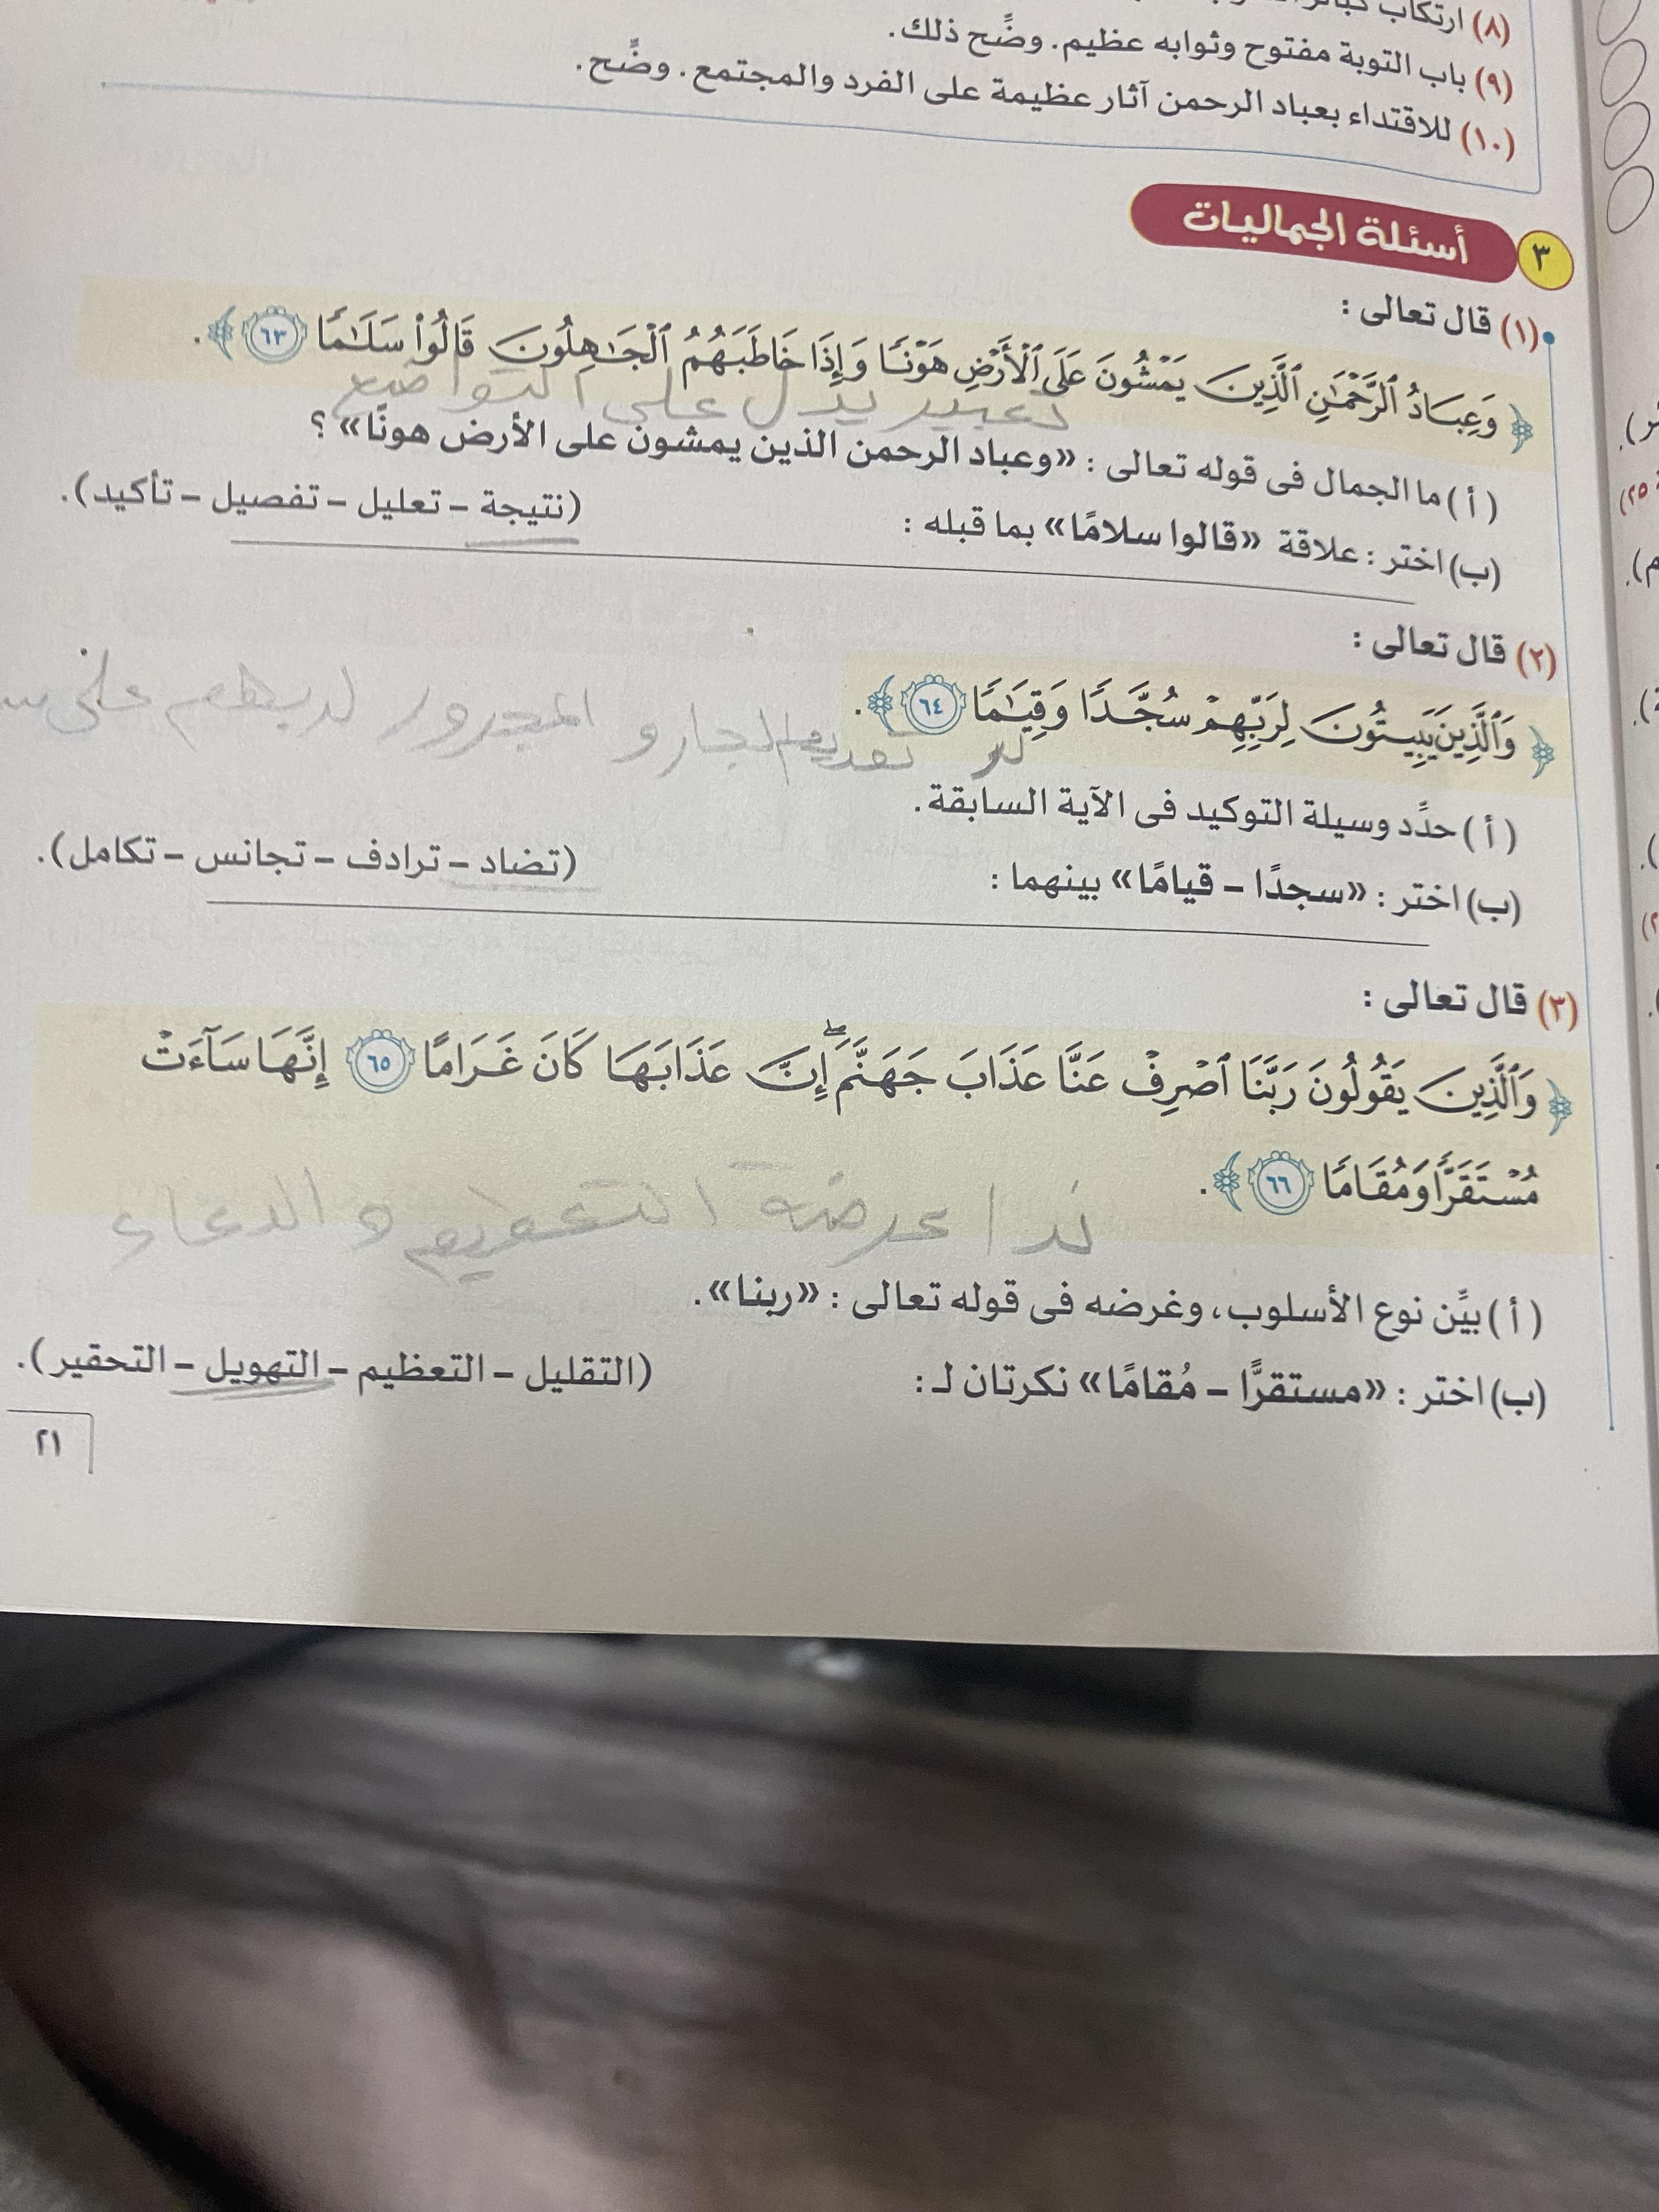 (٨) ارتكاب
(٩) باب التوبة مفتوح وثوابه عظيم. وضِّح ذلك.
(١٠) للاقتداء بعباد الرحمن آثار عظيمة على الفرد والمجتمع. وضِّح.
٣ أسئلة الجماليات
(١) قال تعالى :
﴿ وَعِبَادُ ٱلرَّحْمَٰنِ ٱلَّذِينَ يَمْشُونَ عَلَى ٱلْأَرْضِ هَوْنًا وَإِذَا خَاطَبَهُمُ ٱلْجَٰهِلُونَ قَالُوا۟ سَلَٰمًا ٦٣ ﴾.
تعبير يدل على التواضع
(أ) ما الجمال فى قوله تعالى : «وعباد الرحمن الذين يمشون على الأرض هونًا» ؟
(ب) اختر : علاقة «قالوا سلامًا» بما قبله : (نتيجة – تعليل – تفصيل – تأكيد).
(٢) قال تعالى :
﴿ وَٱلَّذِينَ يَبِيتُونَ لِرَبِّهِمْ سُجَّدًا وَقِيَٰمًا ٦٤ ﴾.
تقديم الجار و المجرور لربهم على
(أ) حدِّد وسيلة التوكيد فى الآية السابقة.
(ب) اختر : «سجدًا – قيامًا» بينهما : (تضاد – ترادف – تجانس – تكامل).
(٣) قال تعالى :
﴿ وَٱلَّذِينَ يَقُولُونَ رَبَّنَا ٱصْرِفْ عَنَّا عَذَابَ جَهَنَّمَ ۖ إِنَّ عَذَابَهَا كَانَ غَرَامًا ٦٥ إِنَّهَا سَآءَتْ
مُسْتَقَرًّا وَمُقَامًا ٦٦ ﴾.
ندا غرضه التعظيم و الدعاء
(أ) بيِّن نوع الأسلوب، وغرضه فى قوله تعالى : «ربنا».
(ب) اختر : «مستقرًّا – مُقامًا» نكرتان لـ : (التقليل – التعظيم – التهويل – التحقير).
٢١